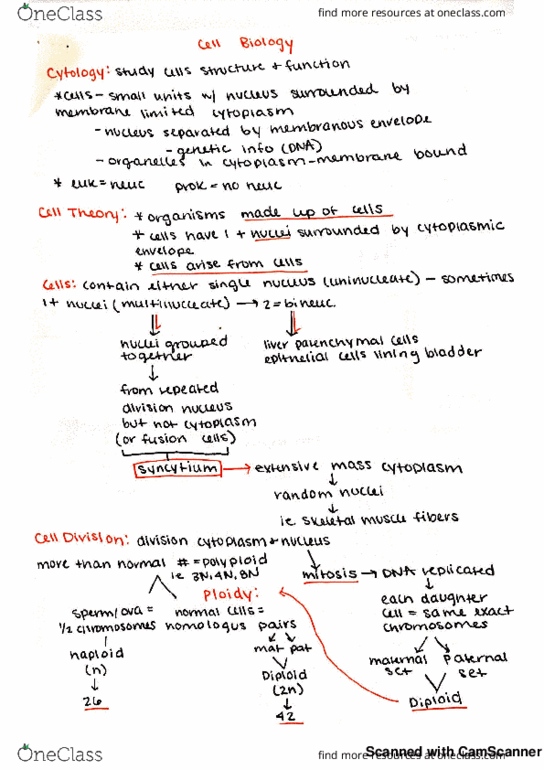 OneClass
find more resources at oneclass.com
Cell Biology
Cytology: study cells structure + function
*cells - small units w/ nucleus surrounded by
membrane limited cytoplasm
- nucleus separated by membranous envelope
- genetic info (DNA)
- organelles in cytoplasm - membrane bound
* euk = neuc prok = no neuc
Cell Theory: * organisms made up of cells
* cells have 1 + nuclei surrounded by cytoplasmic
envelope
* cells arise from cells
Cells: contain either single nucleus (uninucleate) - sometimes
1+ nuclei (multinucleate) → 2 = bineuc.
nuclei grouped
together
liver parenchymal cells
epithelial cells lining bladder
from repeated
division nucleus
but not cytoplasm
(or fusion cells)
syncytium → extensive mass cytoplasm
random nuclei
ie skeletal muscle fibers
Cell Division: division cytoplasm + nucleus
more than normal # = polyploid
ie 3N, 4N, 8N
mitosis → DNA replicated
each daughter
cell = same exact
chromosomes
maternal set
paternal set
Diploid
Ploidy:
sperm/ova =
1/2 chromosomes
haploid
(n)
26
normal cells =
homologus pairs
mat pat
Diploid
(2n)
42
OneClass
find more resources at oneclass.com
Scanned with CamScanner